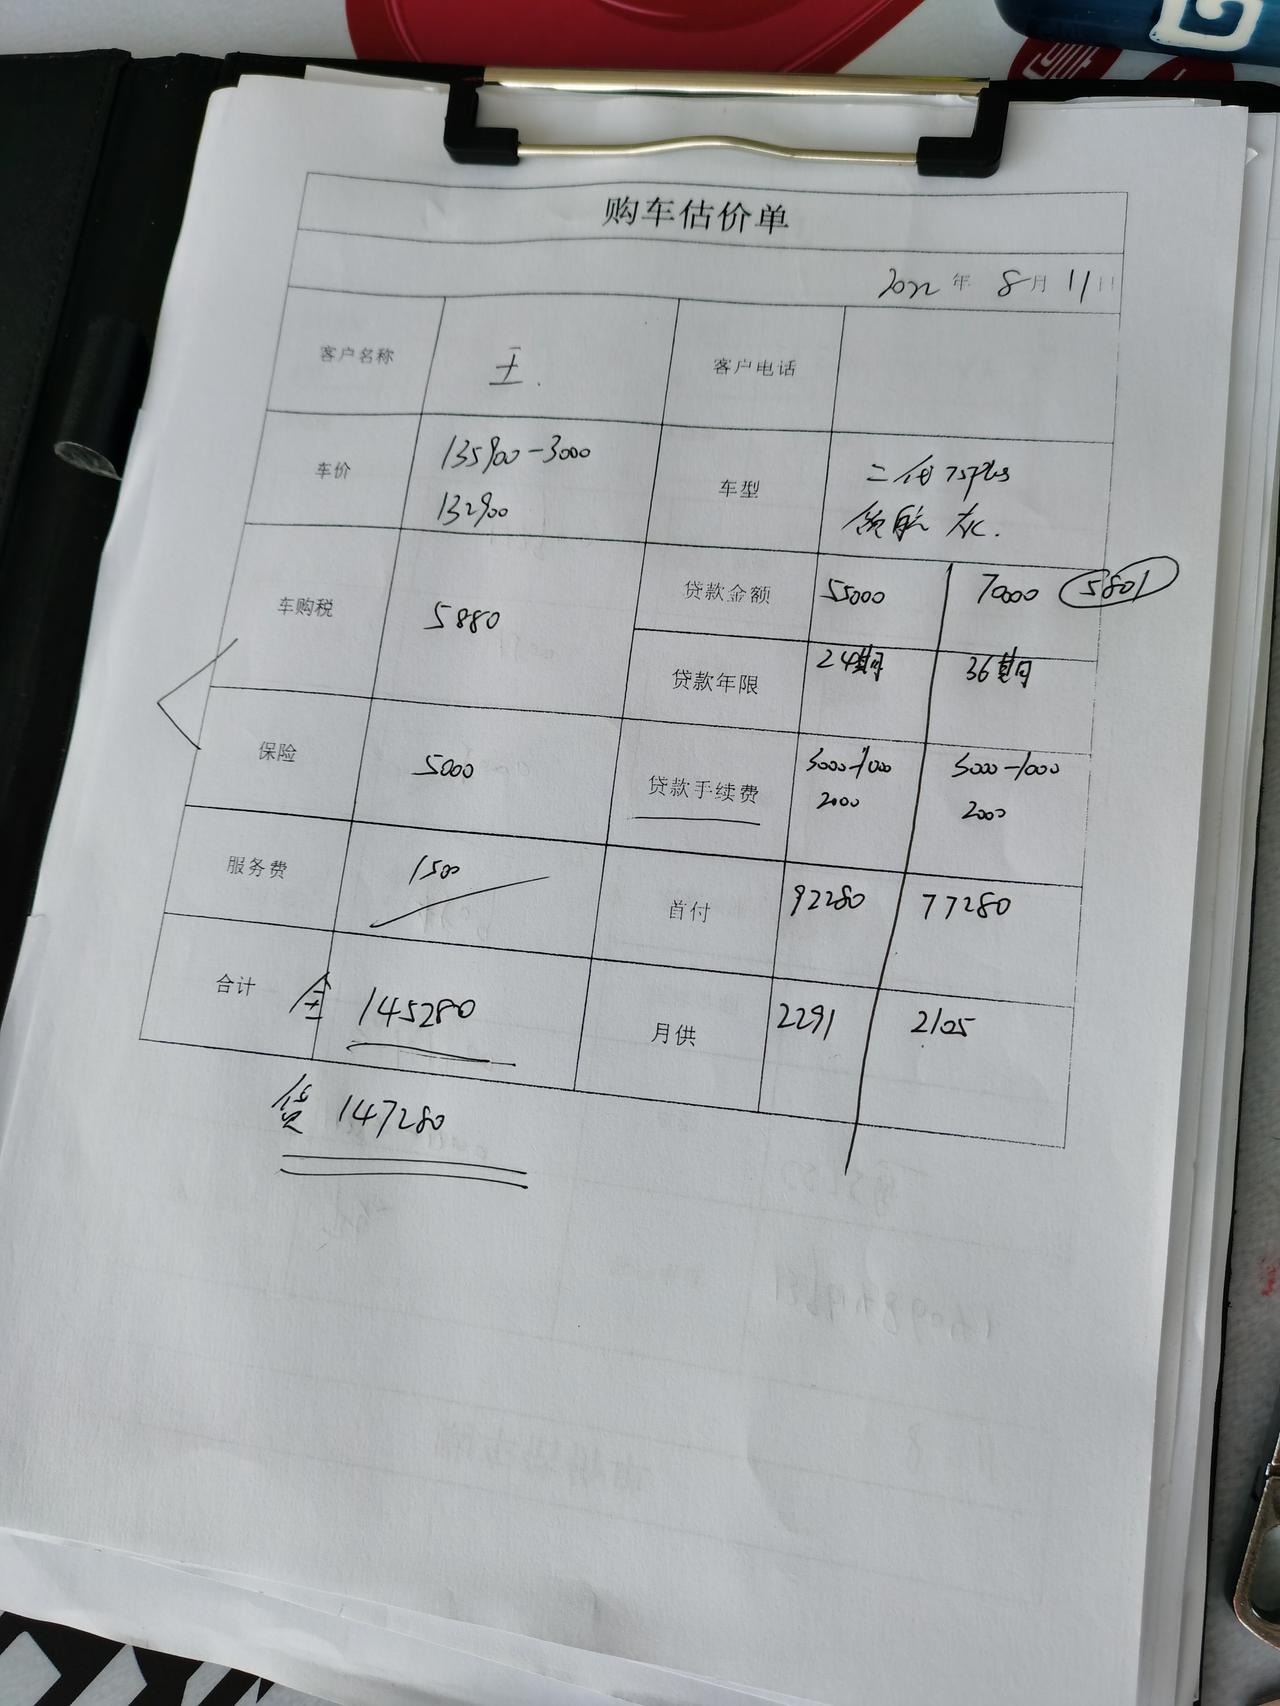 购车估价单
2022年 8月 11日
客户名称 王. 客户电话
车价 135900-3000
132900
车型 二代 75Plus
领航 灰.
车购税 5880
贷款金额 55000 70000 5801
贷款年限 24期 36期
保险 5000
贷款手续费 3000-1000 3000-1000
2000 2000
服务费 1500
首付 92280 77280
合计 全 145280
月供 2291 2105
贷 147280